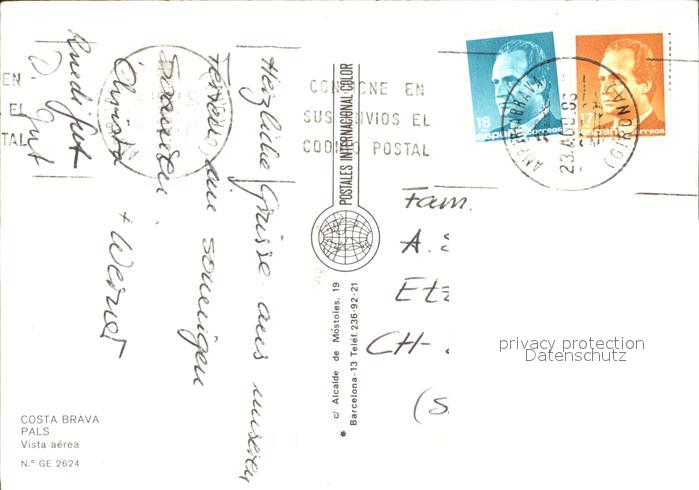 Herzliche Grüsse aus unseren
Ferien, am sonnigen
Christa + Werner
Ruedi Gut
D. Gut
CONSIGNE EN
SUS ENVIOS EL
CODIGO POSTAL
EN
EL
TAL
18
españa correos
17
españa correos
AMPURIABRAVA
23.AGO.
(GIRONA)
POSTALES INTERNACIONAL COLOR
* c/ Alcalde de Móstoles, 19
Barcelona-13 Teléf. 236-92-21
Fam.
A. S
Etz
CH-
(S
privacy protection
Datenschutz
COSTA BRAVA
PALS
Vista aérea
N.° GE 2624